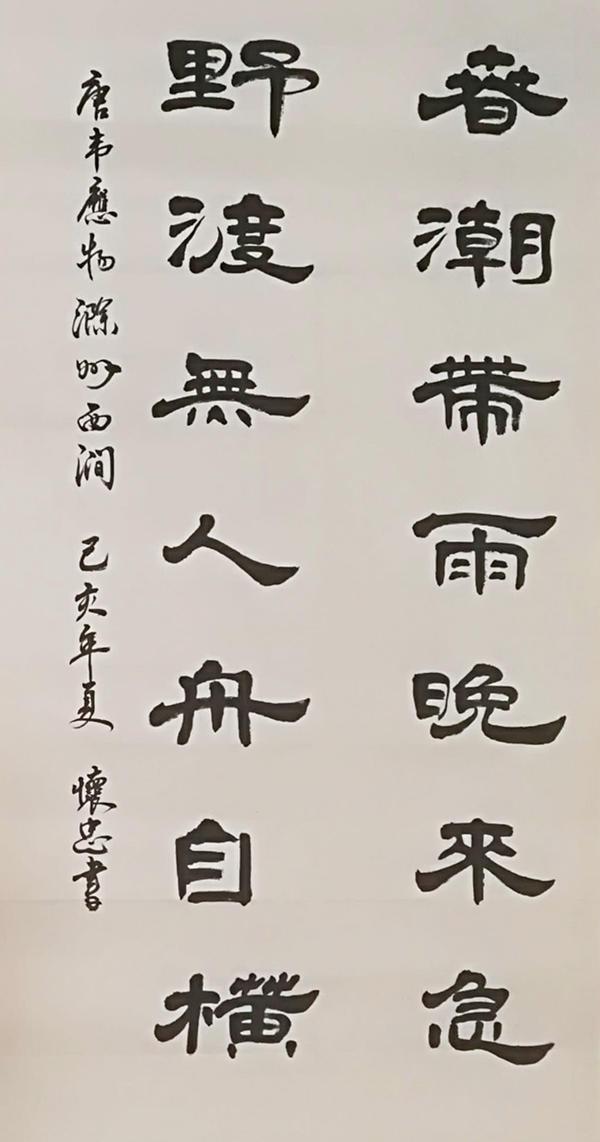 春潮帶雨晚來急
野渡無人舟自橫
唐韦應物滁州西澗 己亥年夏 懷忠書